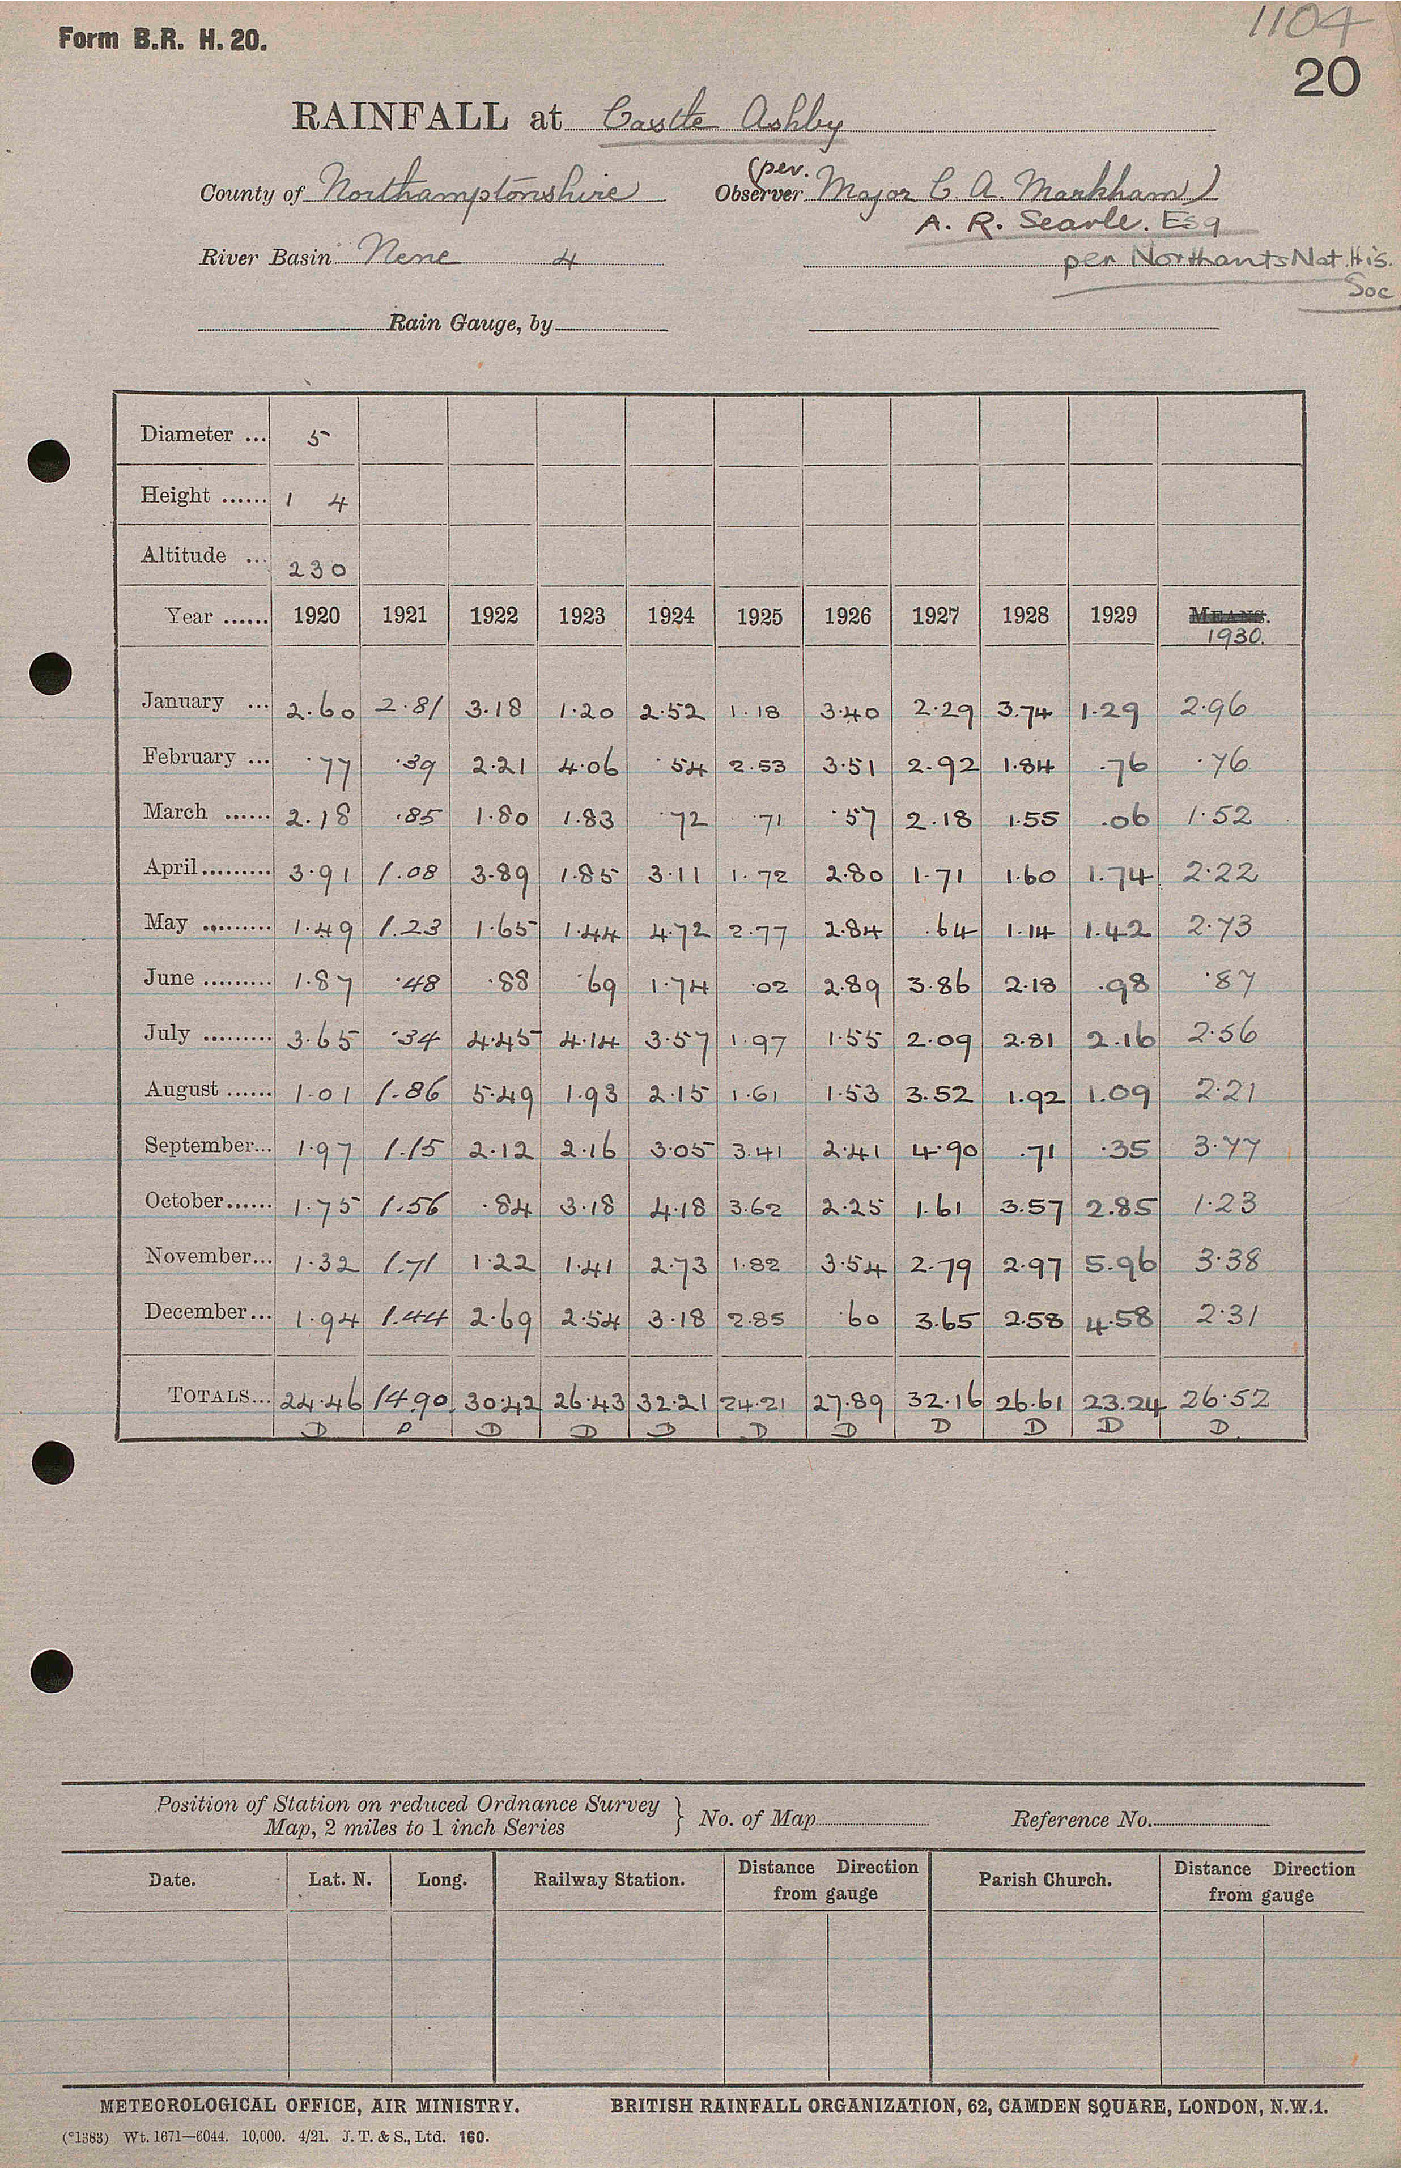 1104
Form B.R. H. 20.
20
RAINFALL at Castle Ashby
(per.
County of Northamptonshire Observer Major C A. Markham)
A. R. Searle. Esq
River Basin Nene 4 per Northants Nat His.
Soc
Rain Gauge, by
Diameter ... 5
Height ...... 1 4
Altitude ... 230
Year ...... 1920 1921 1922 1923 1924 1925 1926 1927 1928 1929 MEANS.
1930.
January ... 2.60 2.81 3.18 1.20 2.52 1.18 3.40 2.29 3.74 1.29 2.96
February ... .77 .39 2.21 4.06 .54 2.53 3.51 2.92 1.84 .76 .76
March ...... 2.18 .85 1.80 1.83 .72 .71 .57 2.18 1.55 .06 1.52
April ......... 3.91 1.08 3.89 1.85 3.11 1.72 2.80 1.71 1.60 1.74 2.22
May ......... 1.49 1.23 1.65 1.44 4.72 2.77 2.84 .64 1.14 1.42 2.73
June ......... 1.87 .48 .88 .69 1.74 .02 2.89 3.86 2.18 .98 .87
July ......... 3.65 .34 4.45 4.14 3.57 1.97 1.55 2.09 2.81 2.16 2.56
August ...... 1.01 1.86 5.49 1.93 2.15 1.61 1.53 3.52 1.92 1.09 2.21
September... 1.97 1.15 2.12 2.16 3.05 3.41 2.41 4.90 .71 .35 3.77
October...... 1.75 1.56 .84 3.18 4.18 3.62 2.25 1.61 3.57 2.85 1.23
November... 1.32 1.71 1.22 1.41 2.73 1.82 3.54 2.79 2.97 5.96 3.38
December... 1.94 1.44 2.69 2.54 3.18 2.85 .60 3.65 2.58 4.58 2.31
TOTALS... 24.46 14.90 30.42 26.43 32.21 24.21 27.89 32.16 26.61 23.24 26.52
D D D D D D D D D D D.
Position of Station on reduced Ordnance Survey
Map, 2 miles to 1 inch Series } No. of Map Reference No.
Date. Lat. N. Long. Railway Station. Distance Direction
from gauge Parish Church. Distance Direction
from gauge
METEOROLOGICAL OFFICE, AIR MINISTRY. BRITISH RAINFALL ORGANIZATION, 62, CAMDEN SQUARE, LONDON, N.W.1.
(*1383) Wt. 1671—6044. 10,000. 4/21. J. T. & S., Ltd. 160.